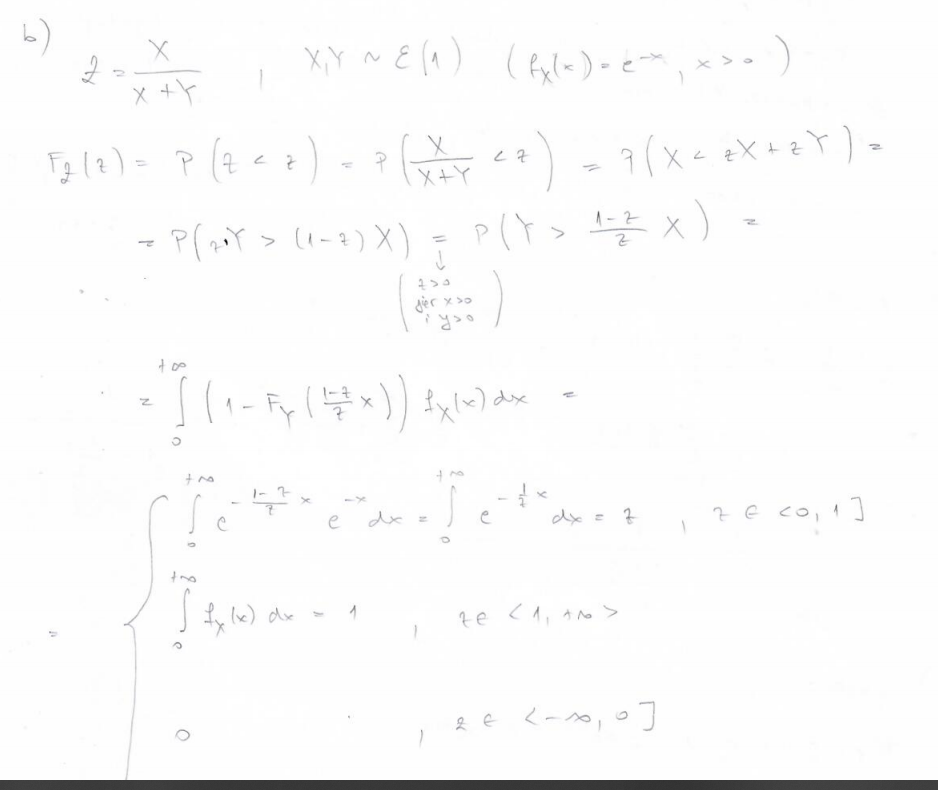 b)
Z = X/(X+Y) , X,Y ~ ε(1) (f_X(x) = e^{-x}, x>0)
F_Z(z) = P(Z < z) = P(X/(X+Y) < z) = P(X < zX + zY) =
= P(zY > (1-z)X) = P(Y > (1-z)/z X) =
↓
(z>0
jer x>0
i y>0)
= ∫_0^{+∞} (1 - F_Y((1-z)/z x)) f_X(x) dx =
= { ∫_0^{+∞} e^{-(1-z)/z x} e^{-x} dx = ∫_0^{+∞} e^{-1/z x} dx = z , z ∈ <0, 1]
∫_0^{+∞} f_X(x) dx = 1 , z ∈ <1, +∞>
0 , z ∈ <-∞, 0]